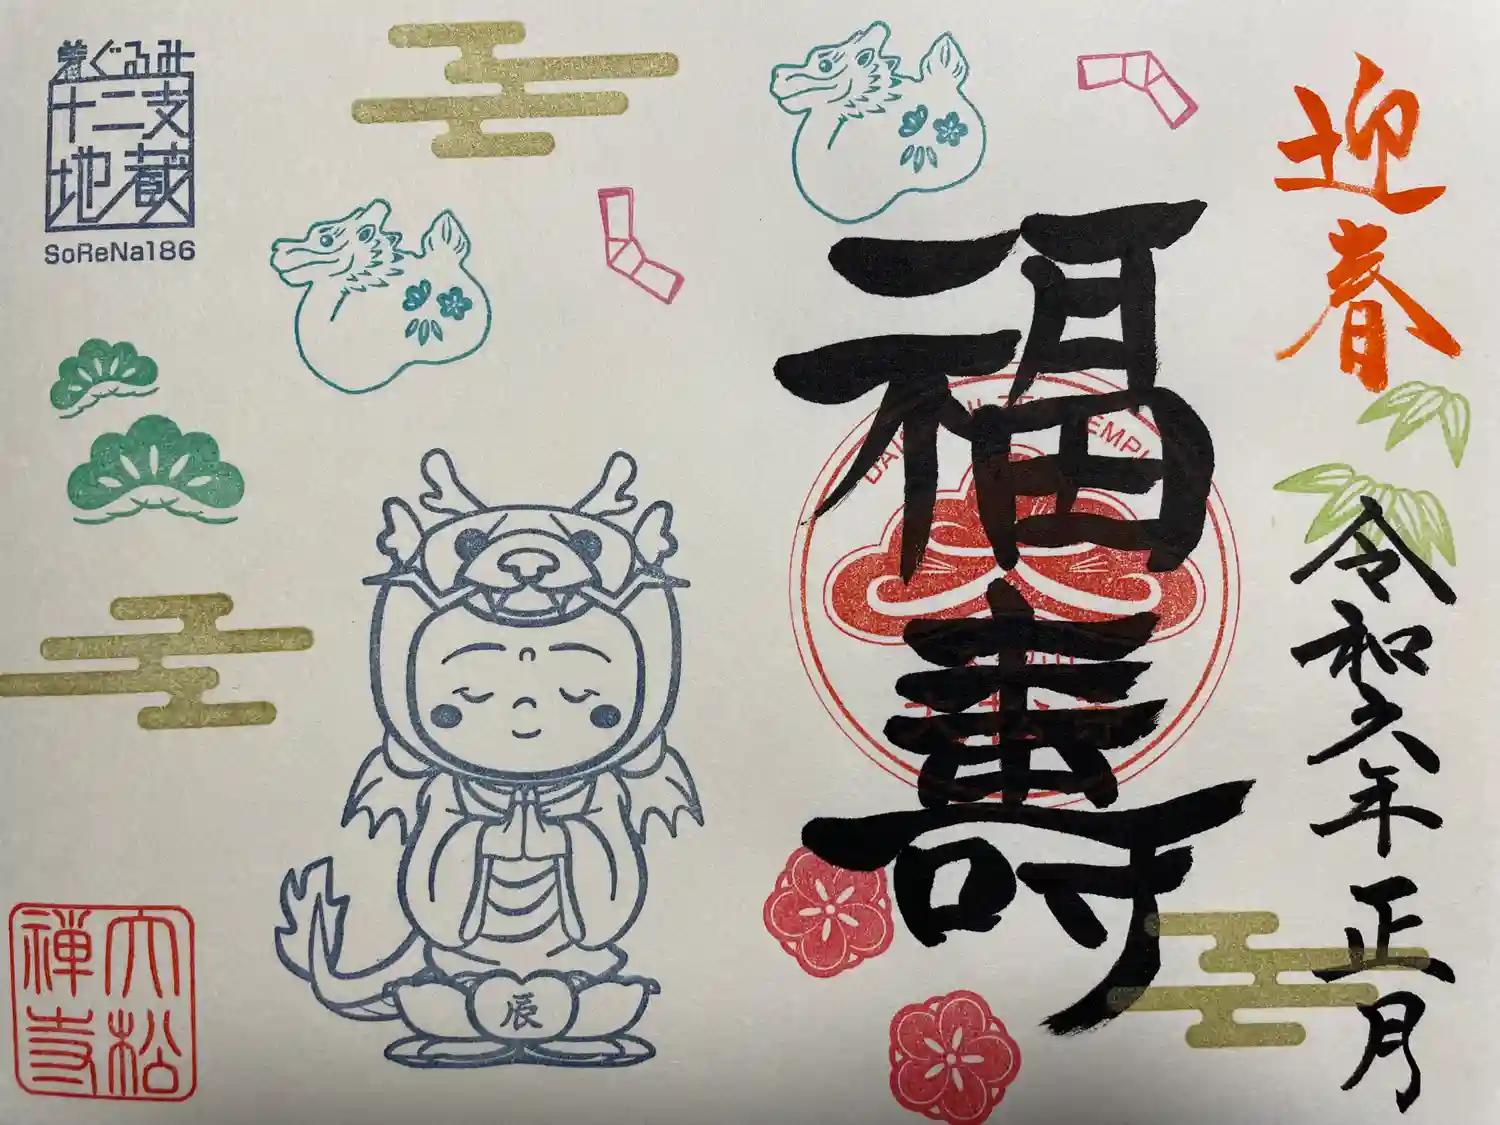 迎春
福壽
令和六年正月
着ぐるみ
十二支
地蔵
SoReNa186
辰
大松
禅寺